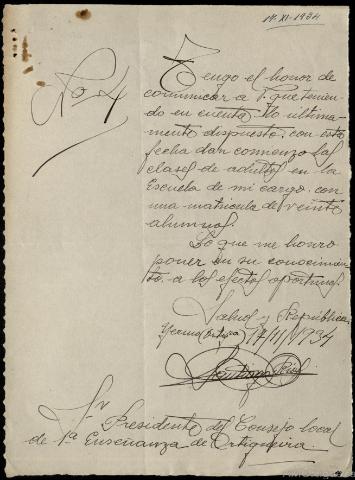 14-XI-1934
No 4
Tengo el honor de
comunicar a V. que tenien-
do en cuenta lo ultima-
mente dispuesto, con esta
fecha dan comienzo las
clases de adultos en la
Escuela de mi cargo, con
una matricula de veinte
alumnos.
Lo que me honro
poner en su conocimien-
to, a los efectos oportunos.
Salud y República
14/11/934
Sr
Presidente del Consejo local
de 1ª Enseñanza de Ortigueira.